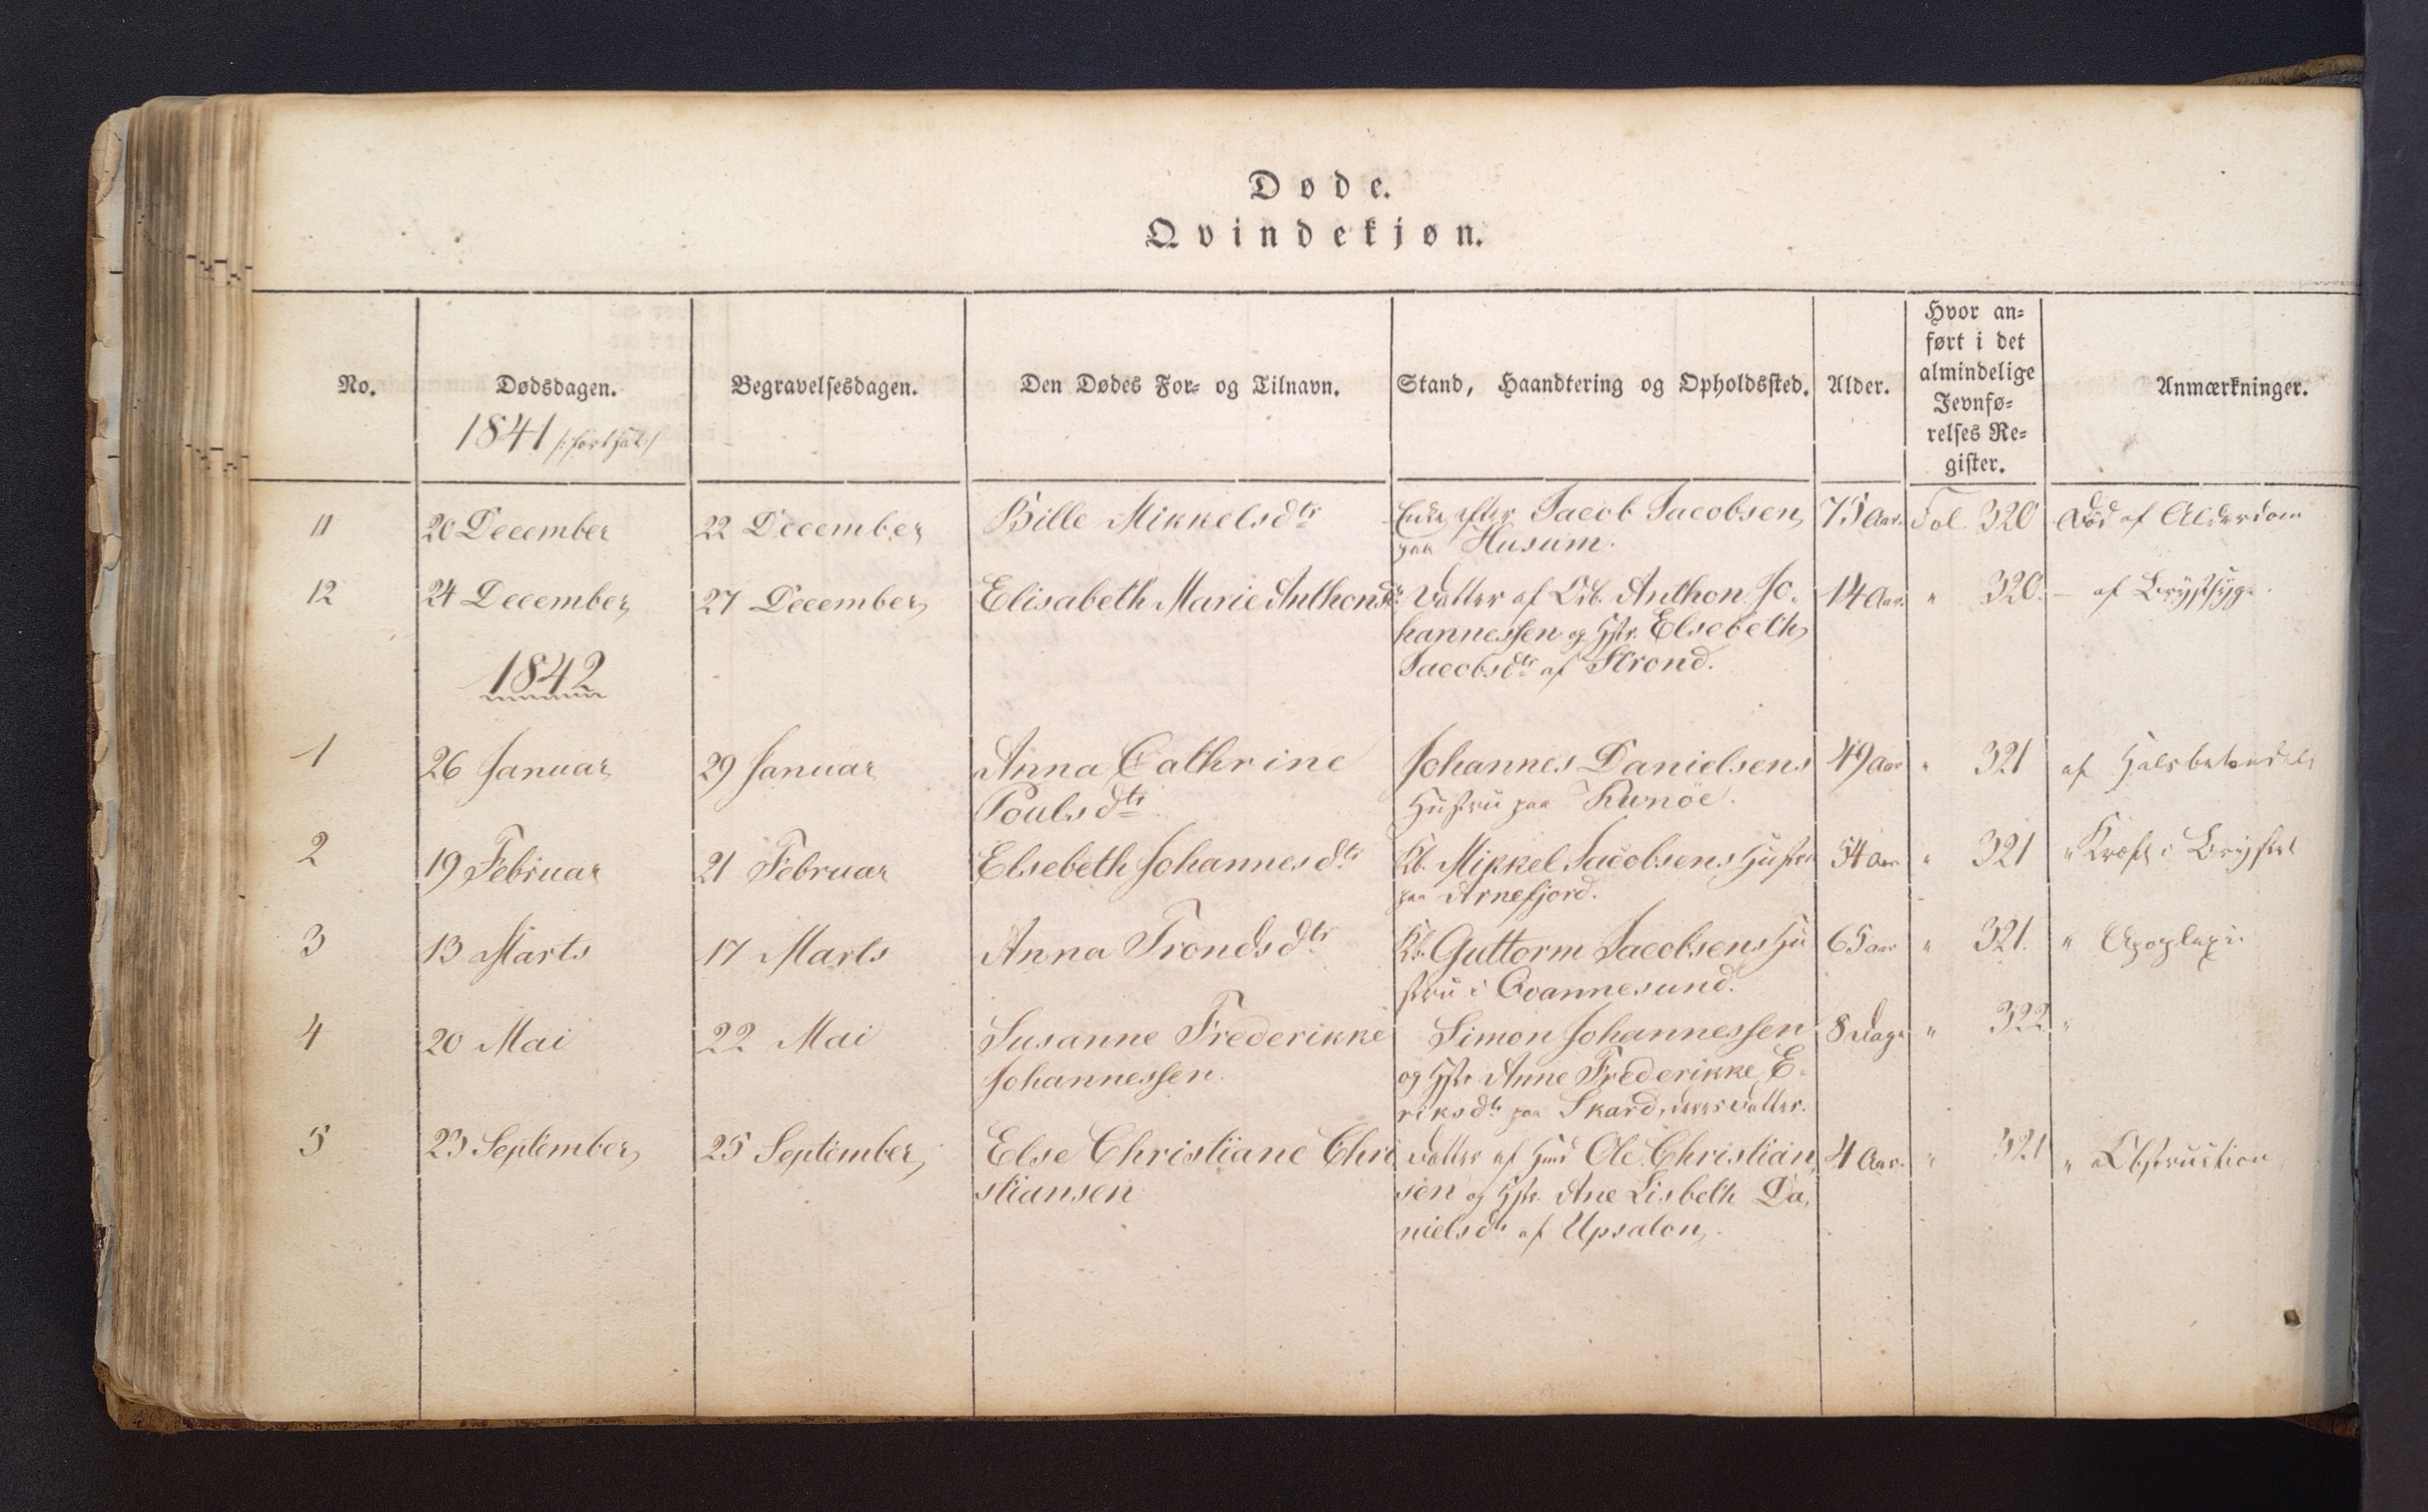 Døde.
Qvindekjøn.
No.
Dødsdagen.
Begravelsesdagen.
Den Dødes For- og Tilnavn.
Stand, Haandtering og Opholdssted.
Alder.
Hvor an-
ført i det
almindelige
Jevnfø-
relses Re-
gister.
Anmærkninger.
1841 /:fortsat:/
11 20 December 22 December Bille Mikkelsdtr Enke efter Jacob Jacobsen 75 Aar. Fol. 320 Død af Alderdom
paa Husum.
12 24 December 27 December Elisabeth Marie Anthonsdtr Datter af Anthon Jo-
hannessen og Hstr. Elsebeth
Jacobsdtr af Strond.
14 Aar. " 320. — af Brystsyge.
1842
1 26 Januar 29 Januar Anna Cathrine
Poulsdtr.
Johannes Danielsens
Hustru paa Kunöe.
49 Aar " 321 af
2 19 Februar 21 Februar Elsebeth Johannesdtr Kb. Mikkel Jacobsens Hustru
paa Arnefjord.
54 Aar " 321 " Kræft i Brystet
3 13 Marts 17 Marts Anna Trondsdtr Kb. Guttorm Jacobsens Hu
stru i Qvannesund.
65 aar " 321. " Apoplexie
4 20 Mai 22 Mai Susanne Frederikke
Johannessen.
Simon Johannessen
og Hstr Anne Frederikke E-
riksdtr paa Skard, deres Datter.
8 Dage " 322 "
5 23 September 25 September Else Christiane Chri
stiansen
Datter af Ole Christian
sen og Hstr. Ane Lisbeth Da-
nielsdtr af Upsalon.
4 Aar. " 321 " Obstruction